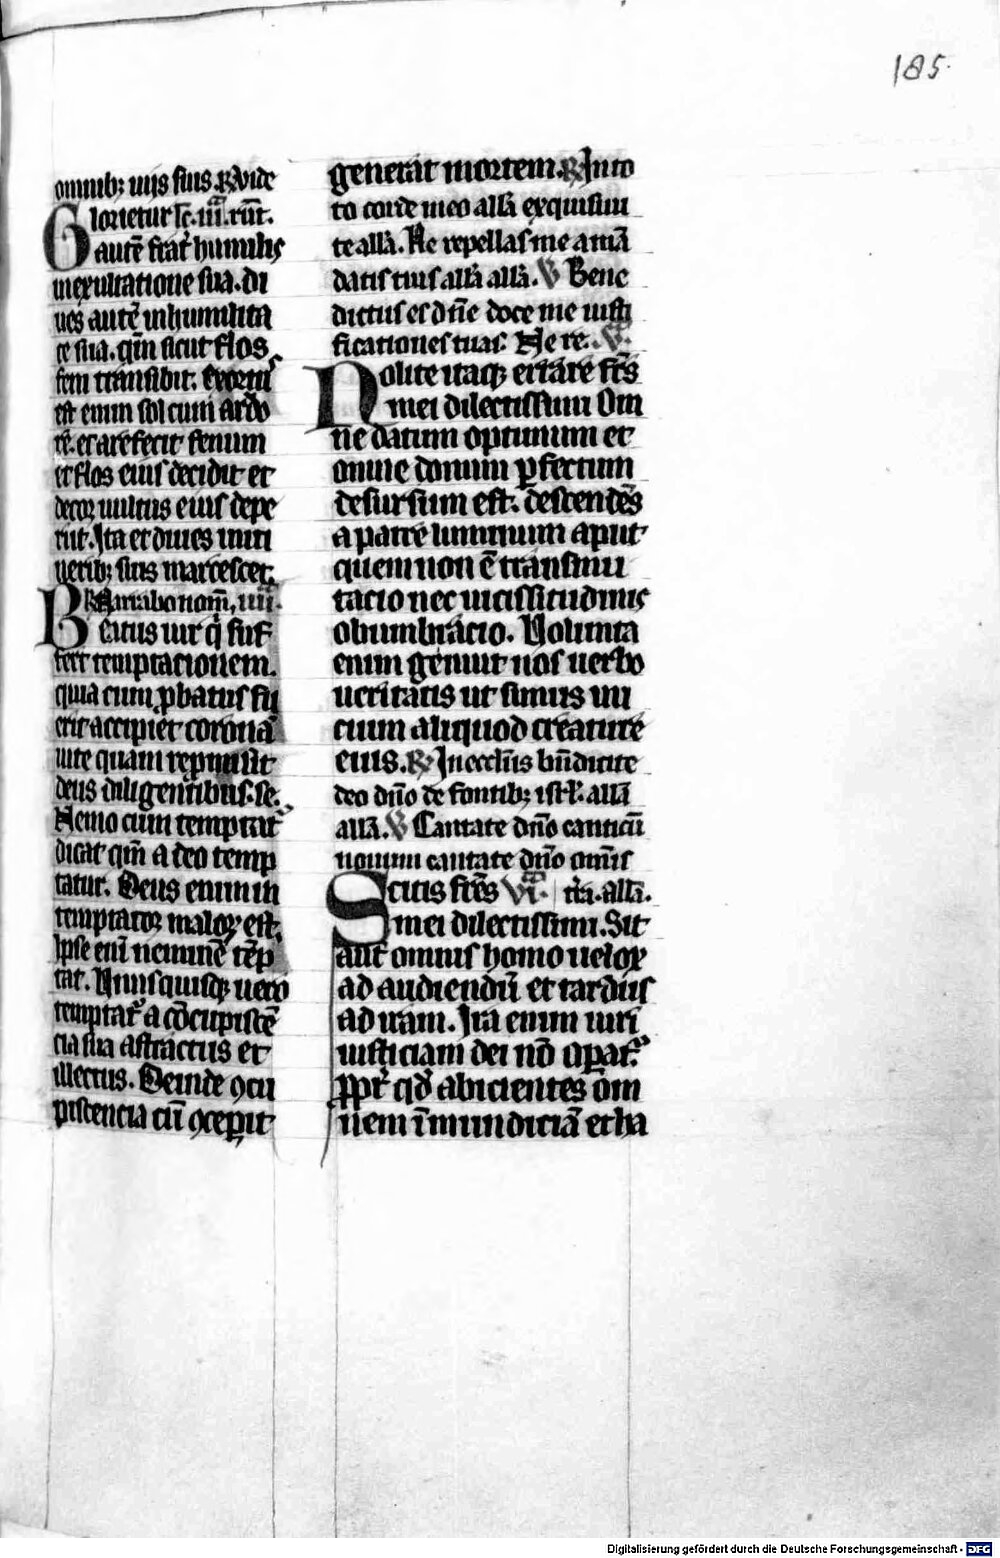 185
omnib; uijs suis. R Vide
Glorietur sc. iii. rūt.
autē frat' humilis
in exultatione sua. di
ues autē in humilita
te sua. qm̄ sicut flos
feni transibit. exort'
est enim sol cum ardo
re. et arefecit fenum
et flos eius decidit et
decor uultus eius depe
riit. Ita et diues in iti
nerib; suis marcescet.
R Narrabo nom̄, iiii.
Beatus uir q̄ suf
fert temptationem.
quia cum p̱batus fu
erit accipiet coronā
uite quam repmisit
deus diligentibus. se.
Nemo cum temptat'
dicat qm̄ a deo temp
tatur. Deus enim in
temptator malor est.
Ipse eni neminē tēp
tat. Unusquisq; uero
temptat' a cōcupiscē
cia sua abstractus et
illectus. Deinde ꝯcu
piscencia cū ꝯceperit
generat mortem. R In to
to corde meo allā exquisiui
te allā. Ne repellas me a mā
datis tuis allā allā. V Bene
dictus es dn̄e doce me iusti
ficationes tuas. Ne re. V.
Nolite itaq; errare frēs
mei dilectissimi Om
ne datum optimum et
omne donum p̱fectum
desursum est. descendēs
a patre luminum aput
quem non ē transmu
tacio nec uicissitudinis
obumbracio. Volunta
enim genuit nos uerbo
ueritatis ut simus ini
cium aliquod creature
eius. R In eccl'iis bn̄dicite
deo dn̄o de fontib; isrl'. allā
allā. V Cantate dn̄o canticū
nouum cantate dn̄o omīs
Scitis frēs VI. t'ra. allā.
mei dilectissimi. Sit
aut omnis homo uelox
ad audiendū et tardus
ad iram. Ira enim uiri
iusticiam dei nō oꝑat'.
ꝓpt' qd' abicientes om
nem īmundiciā et ha
Digitalisierung gefördert durch die Deutsche Forschungsgemeinschaft - DFG